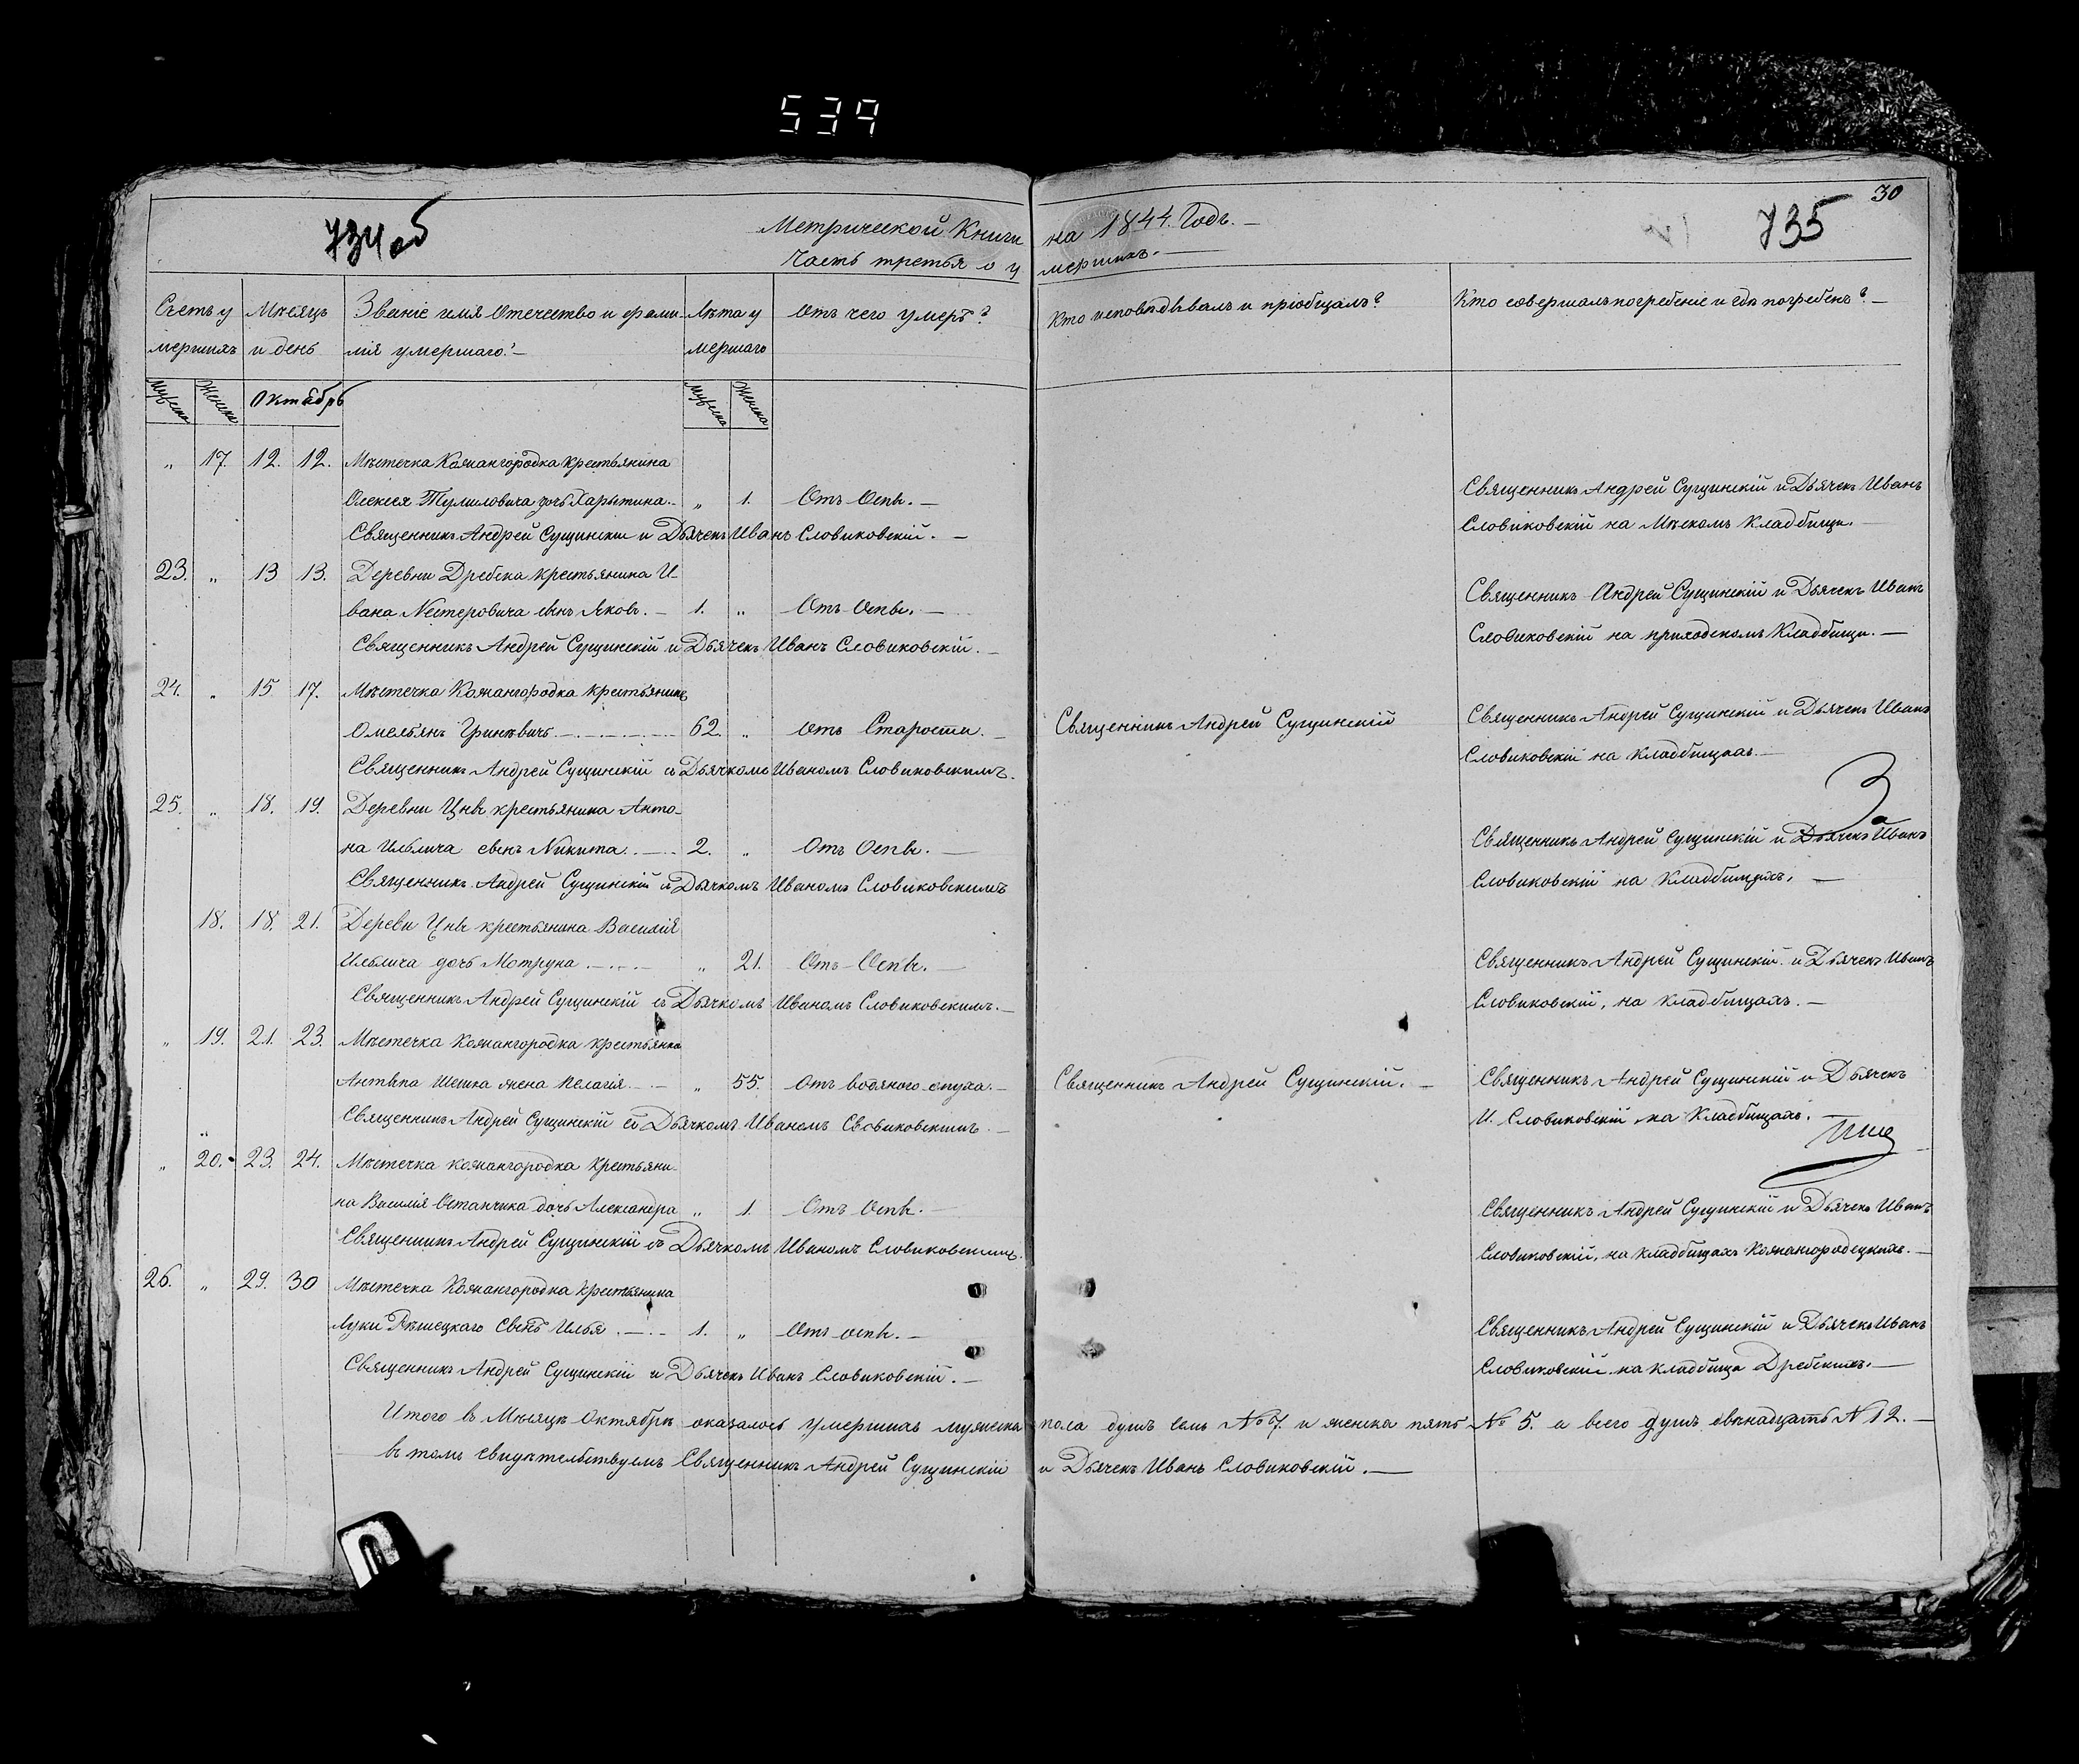 539
30
734об
735
Метрической Книги на 1844. Годъ.
Часть третья о умершихъ.
Счетъ умершихъ
Мѣсяцъ и день
Званіе имя Отечество и фамилія умершаго?
Лѣта умершаго
Отъ чего умеръ?
Кто исповѣдывалъ и пріобщалъ?
Кто совершалъ погребеніе и гдѣ погребенъ?
Мужеска Женска Октябрь Мужеска Женска
„ 17. 12. 12. Мѣстечка Кожангородка крестьянина
Олексея Тумиловича дочь Харытина. „ 1. Отъ Оспы.
Священникъ Андрей Сущинскій и Дьячекъ Иванъ
Словиковскій на Мѣском Кладбищи.
Священникъ Андрей Сущинскій и Дьячекъ Иванъ Словиковскій.
23. „ 13 13. Деревни Дребска крестьянина И-
вана Нестеровича сынъ Яковъ. 1. „ Отъ Оспы.
Священникъ Андрей Сущинскій и Дьячекъ Иванъ
Словиковскій на приходскомъ Кладбищи.
Священникъ Андрей Сущинскій и Дьячекъ Иванъ Словиковскій.
24. „ 15 17. Мѣстечка Кожангородка крестьянинъ
Омельянъ Гринѣвичъ 62. „ Отъ Старости. Священникъ Андрей Сущинскій
Священникъ Андрей Сущинскій и Дьячекъ Иванъ
Словиковскій на кладбищахъ.
Священникъ Андрей Сущинскій съ Дьячкомъ Иваномъ Словиковскимъ.
25. „ 18. 19. Деревни Цны крестьянина Анто-
на Ильича сынъ Никита. 2. „ Отъ Оспы.
Священникъ Андрей Сущинскій и Дьячекъ Иванъ
Словиковскій на Кладбищахъ.
Священникъ Андрей Сущинскій съ Дьячкомъ Иваномъ Словиковскимъ
18. 18. 21. Деревн Цны крестьянина Василія
Ильича дочь Мотруна „ 21. Отъ Оспы.
Священникъ Андрей Сущинскій и Дьячекъ Иванъ
Словиковскій, на кладбищахъ.
Священникъ Андрей Сущинскій съ Дьячкомъ Иваномъ Словиковскимъ.
„ 19. 21. 23. Мѣстечка Кожангородка крестьянина
Антѣпа Шешка жена Пелагія „ 55. Отъ водяного опуха. Священникъ Андрей Сущинскій.
Священникъ Андрей Сущинскій и Дьячекъ
И. Словиковскій на Кладбищахъ.
Священникъ Андрей Сущинскій съ Дьячкомъ Иваномъ Словиковскимъ.
„ 20. 23. 24. Мѣстечка кожангородка крестьяни-
на Василія Остапчика дочь Александра „ 1. Отъ Оспы.
Священникъ Андрей Сущинскій и Дьячекъ Иванъ
Словиковскій, на кладбищахъ Кожангородецкихъ.
Священникъ Андрей Сущинскій съ Дьячкомъ Иваномъ Словиковскимъ.
26. „ 29. 30 Мѣстечка Кожангородка крестьянина
Луки Рѣшецкаго Сынъ Илья 1. „ Отъ оспы.
Священникъ Андрей Сущинскій и Дьячекъ Иванъ
Словиковскій на кладбища Дребскихъ.
Священникъ Андрей Сущинскій и Дьячекъ Иванъ Словиковскій.
Итого въ Мѣсяцѣ Октябрѣ оказалось умершихъ мужеска пола душъ семь № 7. и женска пять № 5. а всего душъ двѣнадцать № 12.
въ томъ свидѣтельствуемъ Священникъ Андрей Сущинскій и Дьячекъ Иванъ Словиковскій.